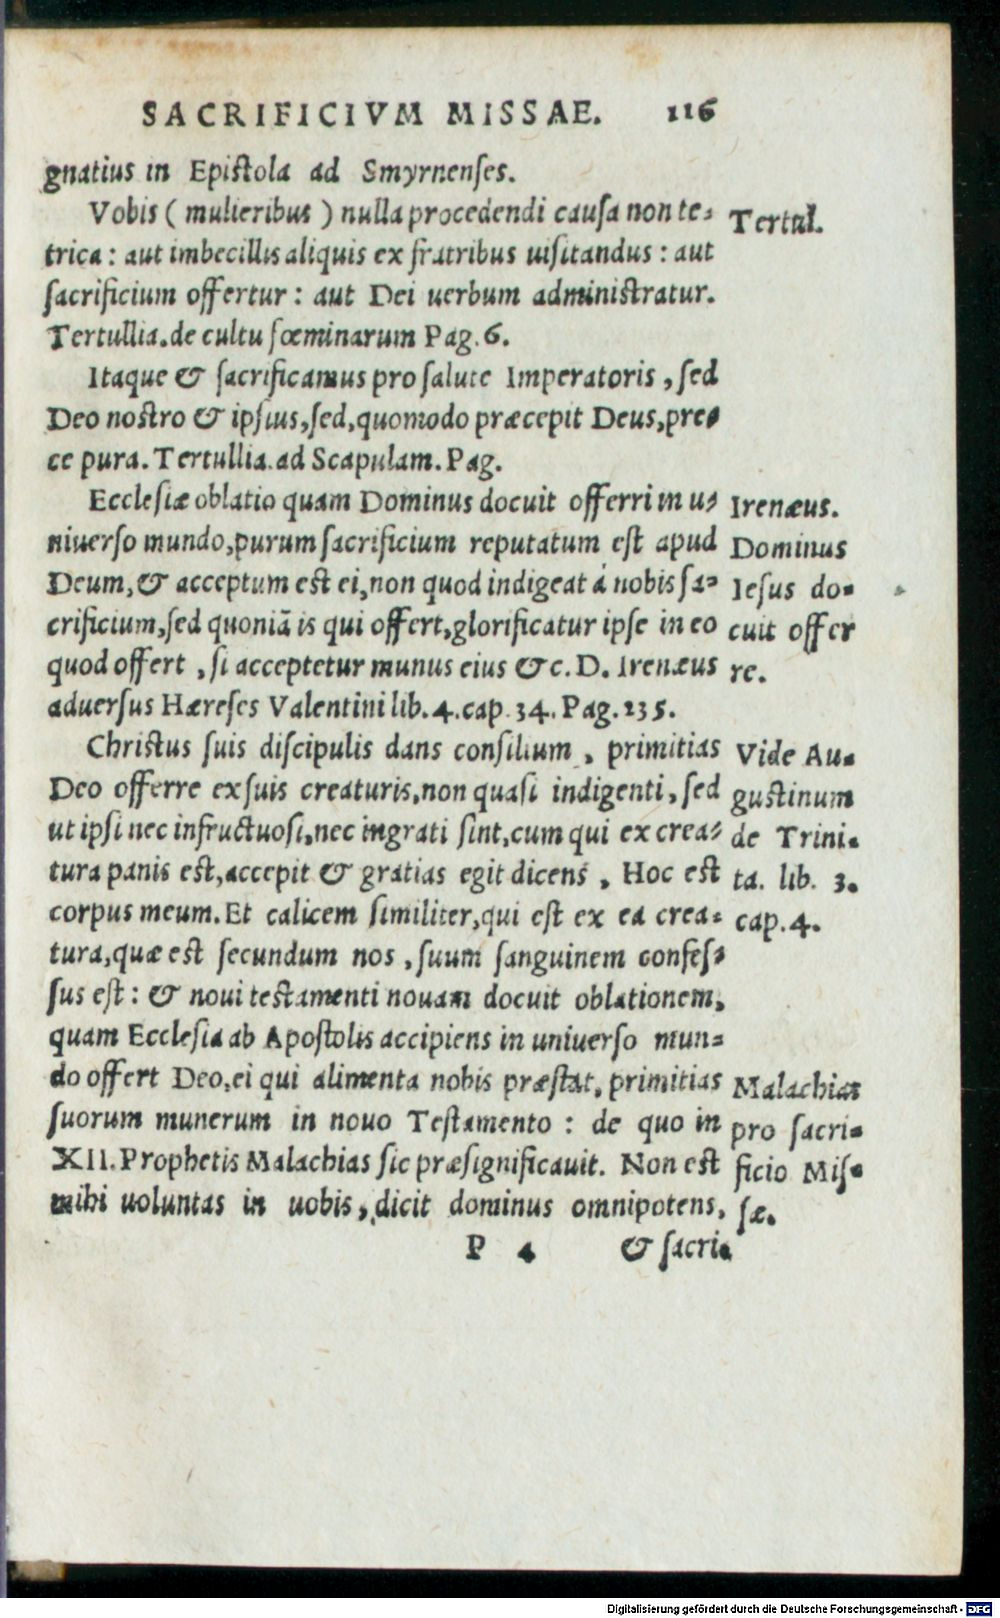 SACRIFICIVM MISSAE. 116
gnatius in Epistola ad Smyrnenses.
Vobis ( mulieribus ) nulla procedendi causa non te-
trica: aut imbecillis aliquis ex fratribus uisitandus: aut
sacrificium offertur: aut Dei uerbum administratur.
Tertullia. de cultu fœminarum Pag. 6.
Tertul.
Itaque & sacrificamus pro salute Imperatoris, sed
Deo nostro & ipsius, sed, quomodo præcepit Deus, pre-
ce pura. Tertullia. ad Scapulam. Pag.
Ecclesiæ oblatio quam Dominus docuit offerri in u-
niuerso mundo, purum sacrificium reputatum est apud
Deum, & acceptum est ei, non quod indigeat á nobis sa-
crificium, sed quoniā is qui offert, glorificatur ipse in eo
quod offert, si acceptetur munus eius &c. D. Irenæus
aduersus Hæreses Valentini lib. 4. cap. 34. Pag. 235.
Irenæus.
Dominus
Iesus do-
cuit offer
re.
Christus suis discipulis dans consilium, primitias
Deo offerre ex suis creaturis, non quasi indigenti, sed
ut ipsi nec infructuosi, nec ingrati sint, cum qui ex crea-
tura panis est, accepit & gratias egit dicens, Hoc est
corpus meum. Et calicem similiter, qui est ex ea crea-
tura, quæ est secundum nos, suum sanguinem confes-
sus est: & noui testamenti nouam docuit oblationem,
quam Ecclesia ab Apostolis accipiens in uniuerso mun-
do offert Deo, ei qui alimenta nobis præstat, primitias
suorum munerum in nouo Testamento: de quo in
XII. Prophetis Malachias sic præsignificauit. Non est
mihi uoluntas in uobis, dicit dominus omnipotens,
Vide Au-
gustinum
de Trini-
ta. lib. 3.
cap. 4.
Malachias
pro sacri-
ficio Mis-
sæ.
P 4 & sacri-
Digitalisierung gefördert durch die Deutsche Forschungsgemeinschaft - DFG